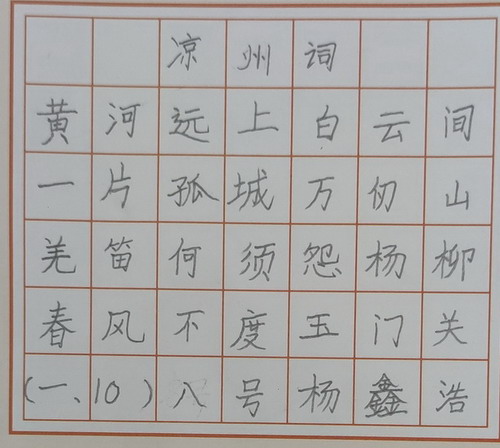 凉州词
黄河远上白云间
一片孤城万仞山
羌笛何须怨杨柳
春风不度玉门关
(一、10)八号杨鑫浩